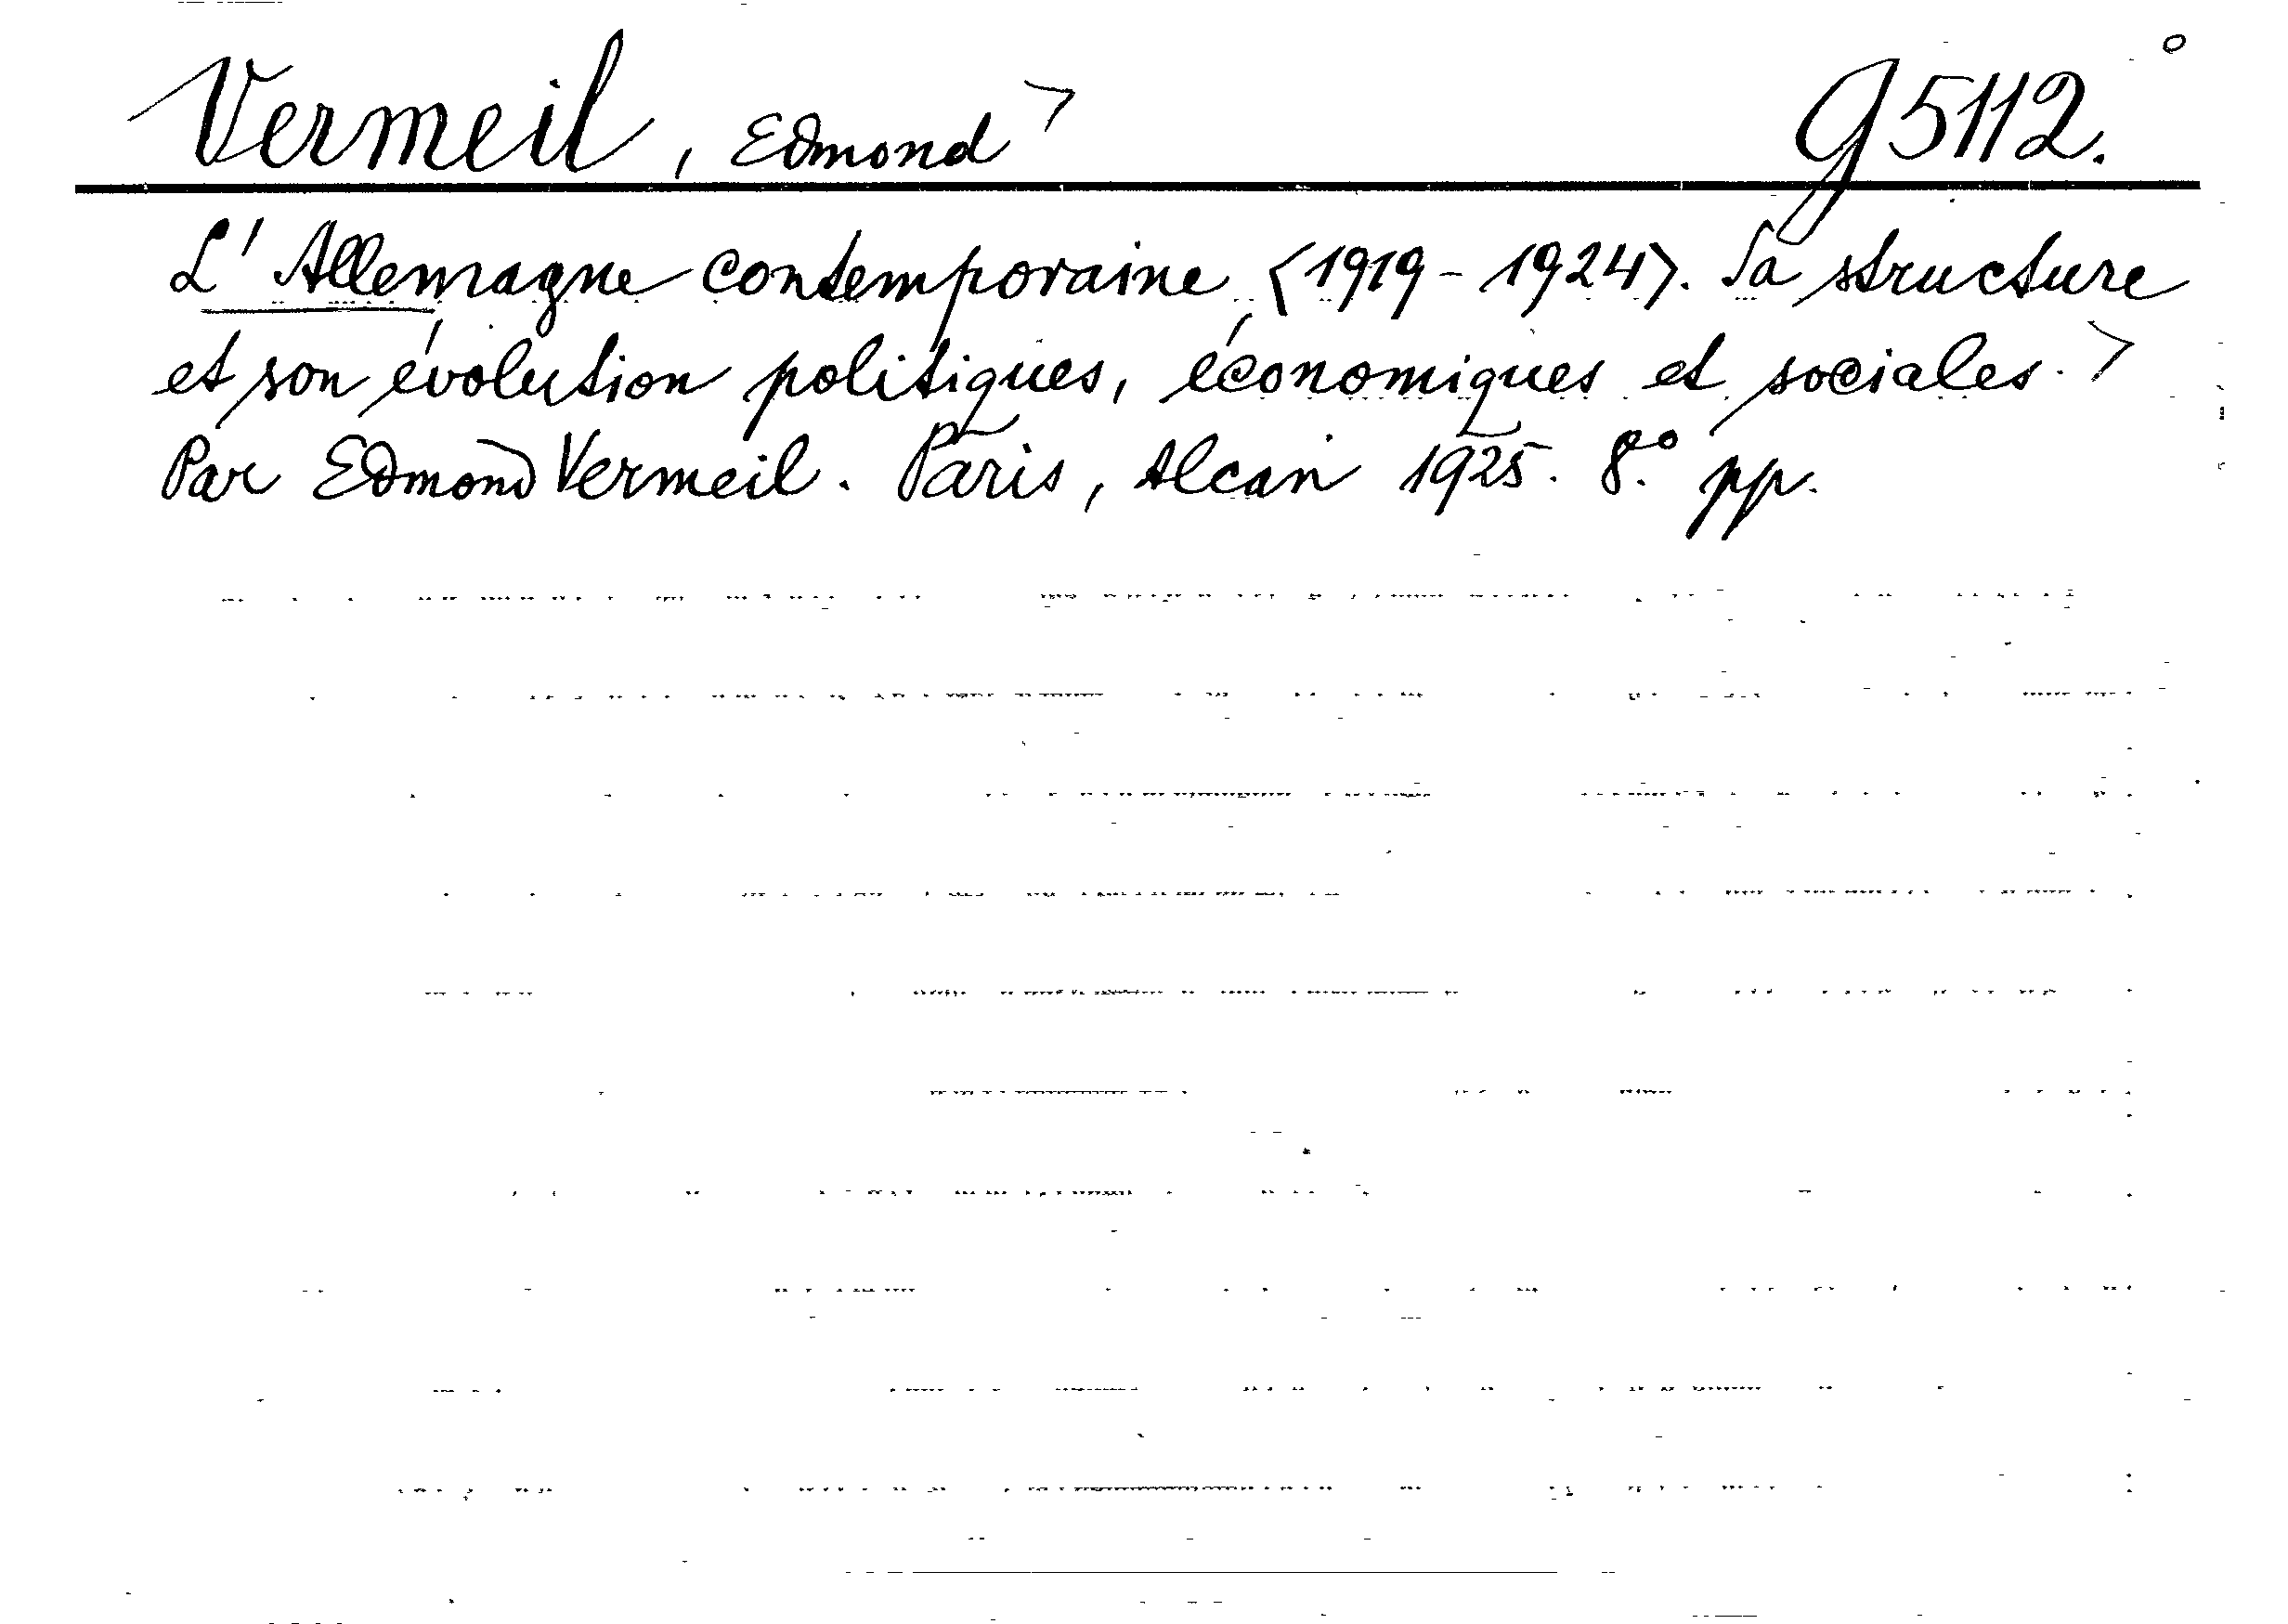 Vermeil, Edmond> g 5112.°
L'Allemagne contemporaine <1919-1924>. Sa structure
et son évolution politiques, économiques et sociales.>
Par Edmond Vermeil. Paris, Alcan 1925. 8.° pp.